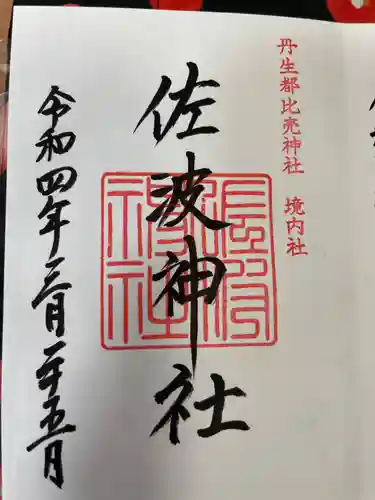 丹生都比売神社　境内社
佐波神社
令和四年三月二十五日